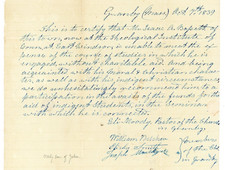 Granby (Mass) Oct. 7th 1839
This is to certify that Mr. Isaac
this town, now at the Theological Institute of
Conn. at East Windsor is unable to meet the ex-
pense of the course of studies in which he is
engaged without charitable aid and being
acquainted with his good & christian charac-
ter, as well as with his indigent circumstances
we do unhesitatingly recommend him to a
participation in the avails of the funds for the
aid of indigent Students, in the Seminary
with which he is connected.
Eli Moody, Pastor of the Church
in Granby.
William
Joseph
of the Chh
in Granby